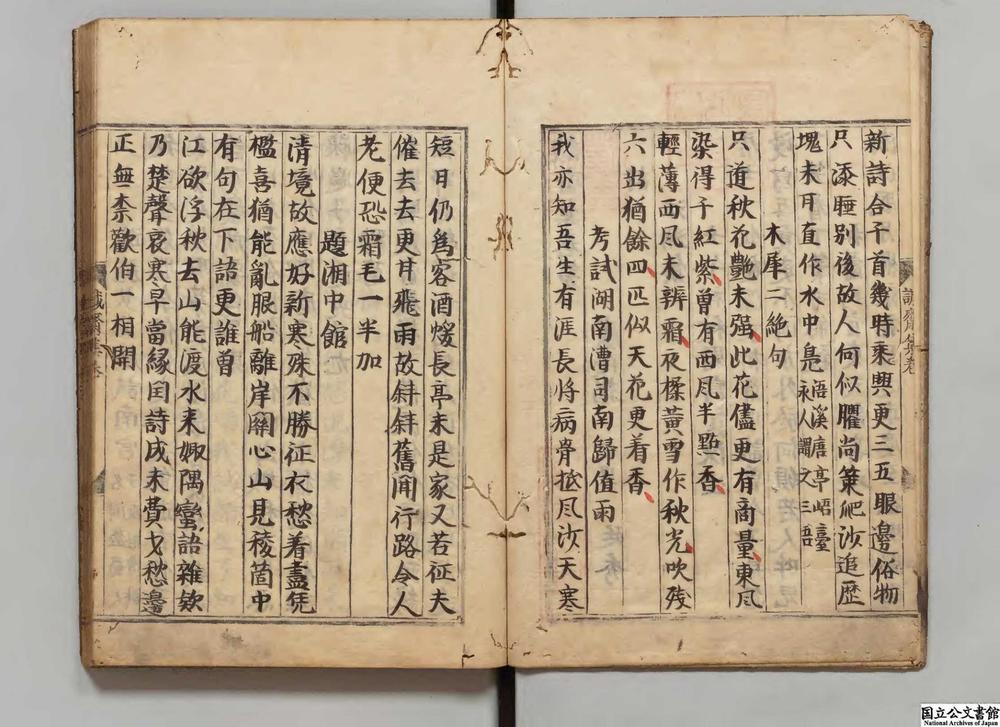 新詩合千首幾時乗興更三五眼邊俗物
只添睡别後故人何似臞尚策肥沙追歴
塊未用直作水中鳬浯溪㾗亭峿臺
永人謂之三吾
木犀二絶句
只道秋花艶未强此花儘更有商量東凨
染得千紅紫曽有西凨半㸃香
輕薄西凨未辨霜夜揉黃雪作秋光吹殘
六出猶餘四匹似天花更着香
考試湖南漕司南歸值雨
我亦知吾生有涯長將病骨抵凨沙天寒
誠齋集卷
短日仍爲客酒煖長亭未是家又若征夫
催去去更幷飛雨故斜斜舊聞行路令人
老便恐霜毛一半加
題湘中館
清境故應好新寒殊不勝征衣愁着盡凭
檻喜猶能亂眼船離岸關心山見稜箇中
有句在下語更誰曽
江欲浮秋去山能渡水来娵隅蠻語雜欸
乃楚聲哀寒早當縁閏詩成未費才愁邊
正無柰歡伯一相開
誠齋集卷
国立公文書館
National Archives of Japan